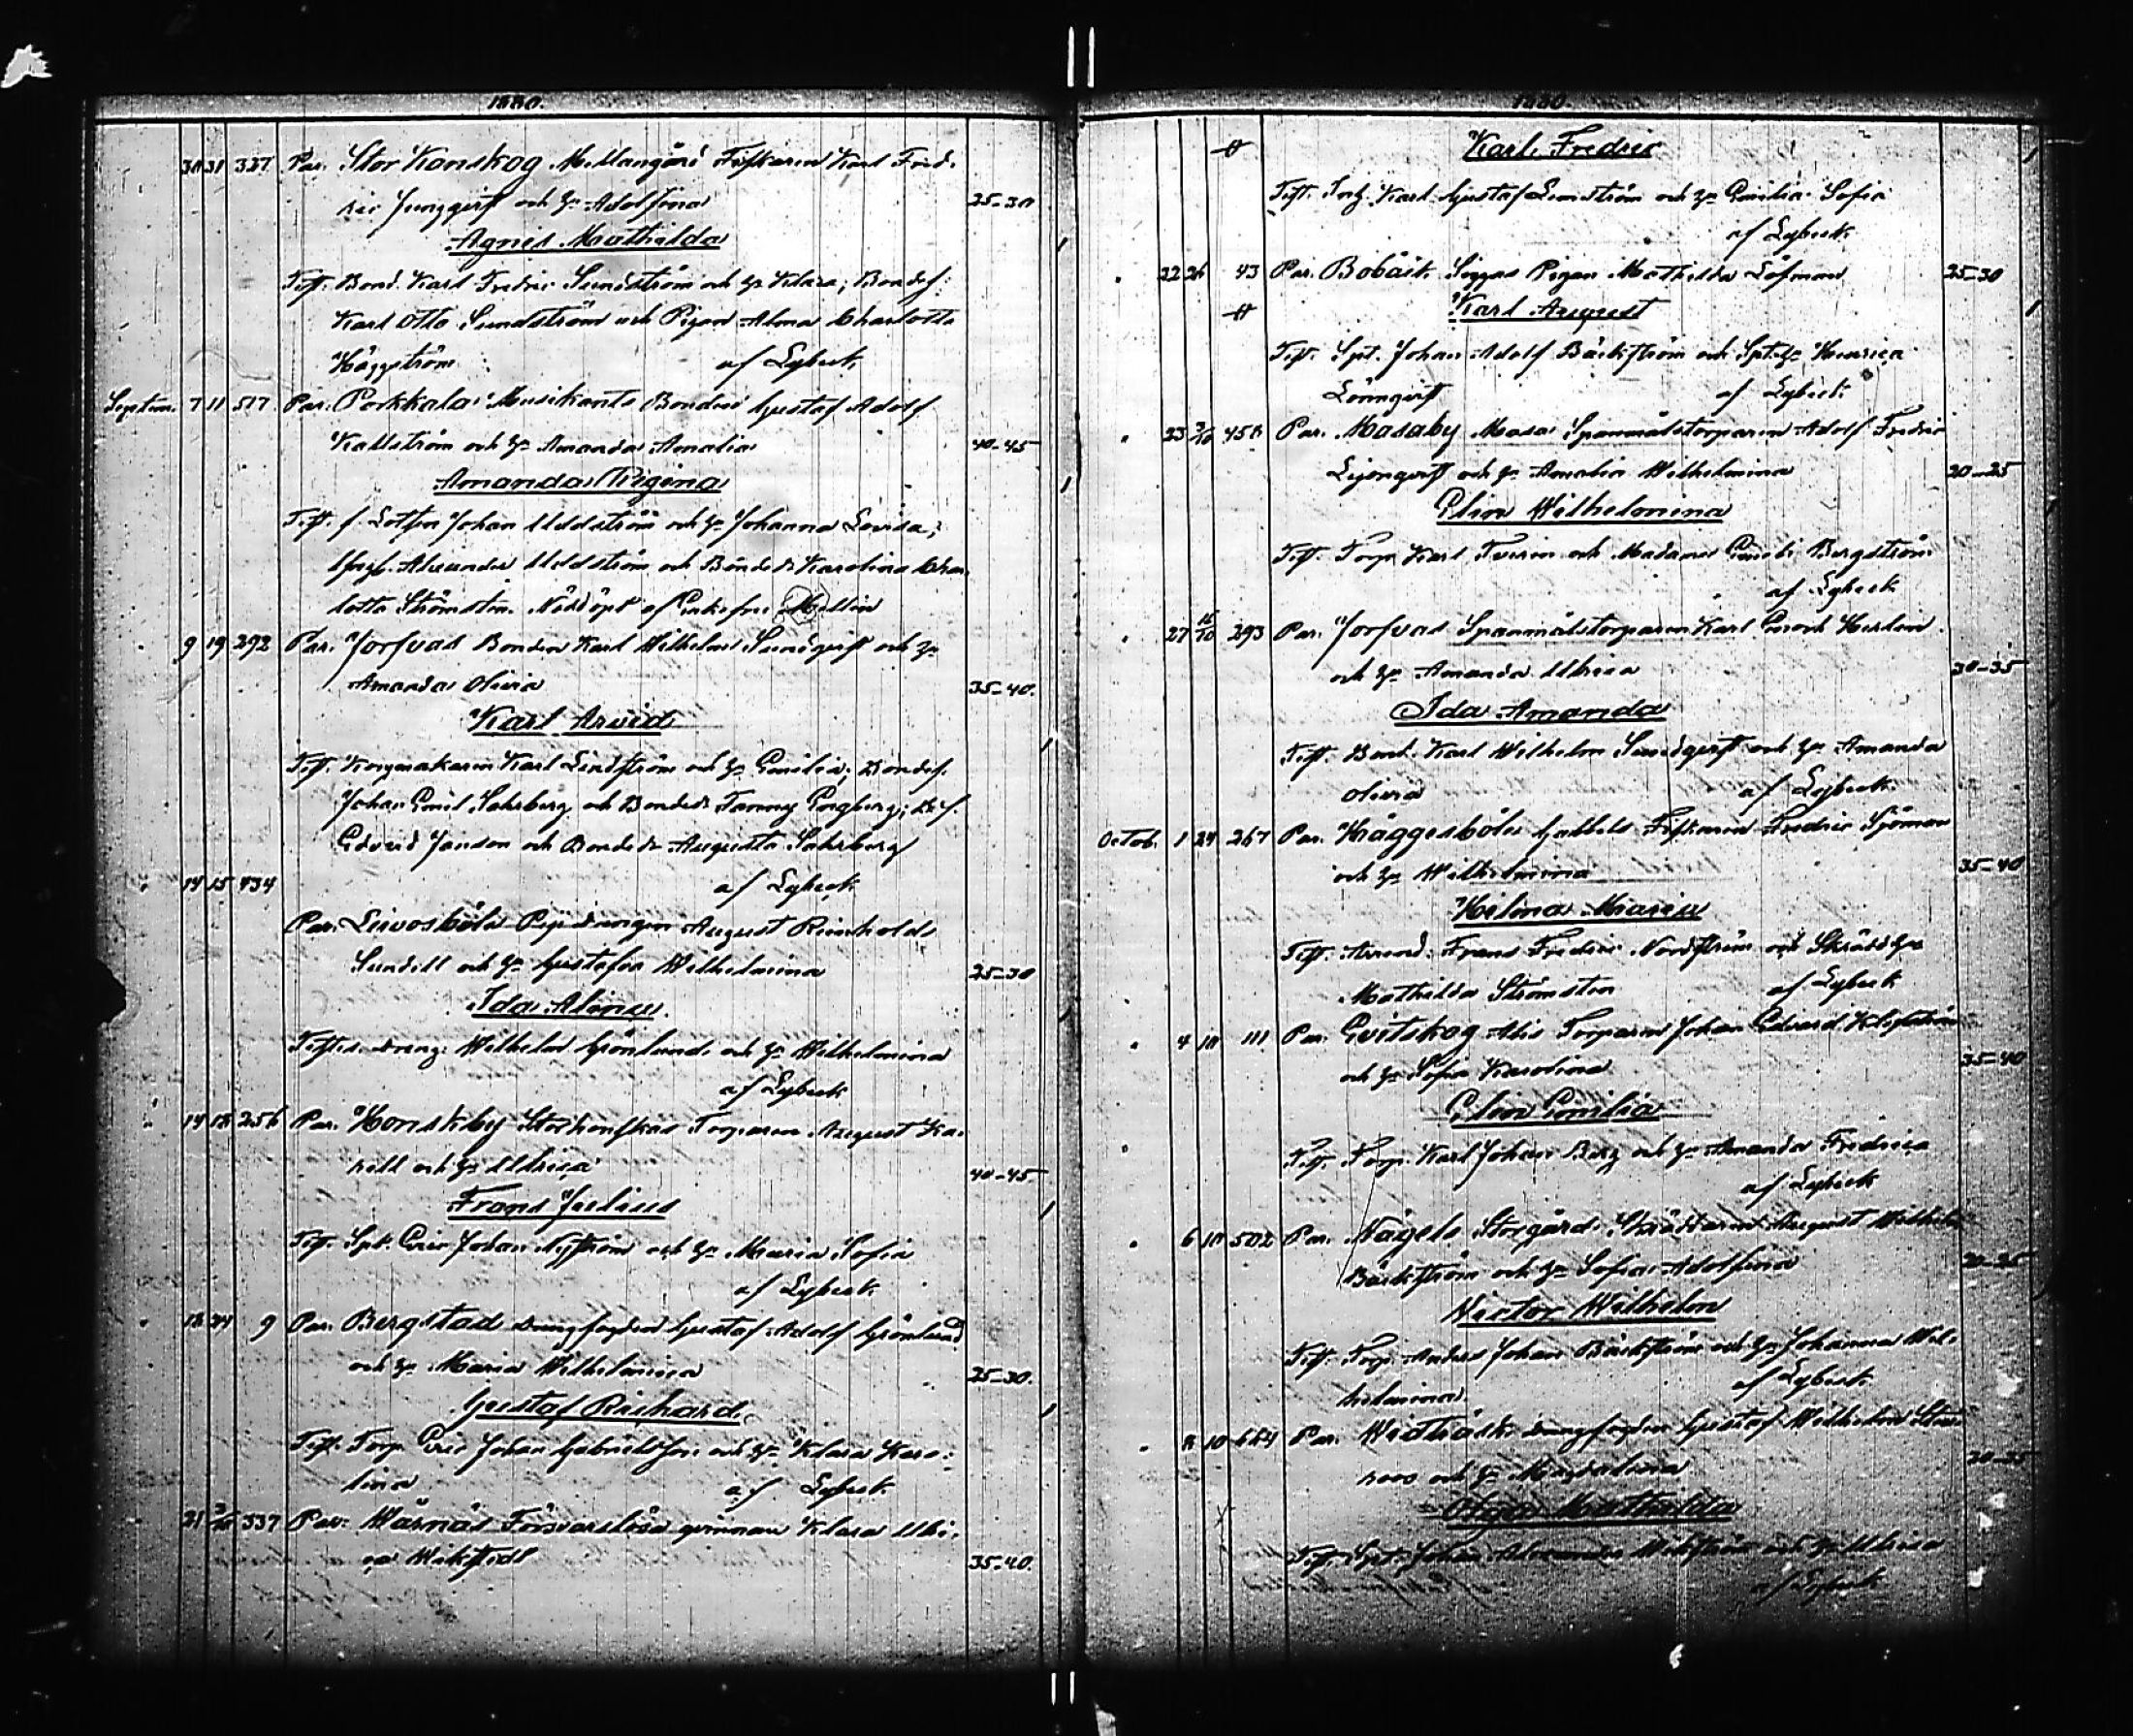 1880.
30 31 337 Par. Stor Kanskog Mellangårds Fiskaren Karl Fred-
ric Ljungqvist och h. Adolfina 25-30
Agnes Mathilda
Test. Bond. Karl Fredric Sundström och h. Klara; Bondes.
Karl Otto Sundström och Pigan Alma Charlotta
Häggström af Lybeck
Septem. 7 11 517 Par. Porkkala Musikants Bonden Gustaf Adolf
Kallström och h. Amanda Amalia 40-45
Amanda Regina
Test. f. Lotsen Johan Uddström och h. Johanna Lovisa;
Alexander Uddström och Bonded. Karolina Char-
lotta Strömsten. Nöddöpt af Enkefru Mellin
9 19 292 Par. Jorfvas Bonden Karl Wilhelm Sundqvist och h.
Amanda Olivia 35-40.
Karl Arvid
Test. Korgmakaren Karl Lindström och h. Emilia; Bondes.
Johan Emil Sahrberg och Bonded. Fanny Engberg; Bds.
Edvard Janson och Bonded. Augusta Sahrberg
af Lybeck
14 15 434
Par. Leivosböle drengen August Reinhold
Sundell och h. Gustafva Wilhelmina 25-30
Ida Alina
Testes dreng. Wilhelm Grönlund och h. Wilhelmina
af Lybeck
14 18 256 Par. Honskby Storhonskas Torparen August Ka-
rell och h. Ulrica 40-45
Frans Julius
Test. Spt. Eric Johan Nyström och h. Maria Sofia
af Lybeck
18 24 9 Par. Bergstad drengfogden Gustaf Adolf Grönlund
och h. Maria Wilhelmina 25-30.
Gustaf Richard
Test. Torp. Eric Johan Gabrielsson och h. Klara Karo-
lina af Lybeck
21 3/10 337 Par. Wärnäs Försvarslösa qvinnan Klara Ulri-
ca Wikstedt 35-40.
1880.
Karl Fredric
Test. Karl Gustaf Lindström och h. Emilia Sofia
af Lybeck
22 26 43 Par. Bobäck Siggas Pigan Mathilda Löfman 25-30
Karl August
Test. Spt. Johan Adolf Bäckström och Spt.h. Henrica
Lönnqvist af Lybeck
23 3/10 458 Par. Masaby Masas Spanmålstorparen Adolf Fredric
Liljenqvist och h. Amalia Wilhelmina 20-25
Elin Wilhelmina
Test. Torp. Karl Tverin och Madame Bergström
af Lybeck
27 16/10 293 Par. Jorfvas Spanmålstorparen Karl Enoch Herlin
och h. Amanda Ulrica 30-35
Ida Amanda
Test. Bond. Karl Wilhelm Sundqvist och h. Amanda
Olivia af Lybeck
Octob. 1 24 267 Par. Häggesböle Gabbels Fiskaren Fredric Sjöman
och h. Wilhelmina 35-40
Helma Maria
Test. Arrend. Frans Fredric Nordström och Skrädd.h.
Mathilda Strömsten af Lybeck
4 10 111 Par. Evitskog Alis Torparen Johan Edvard
och h. Sofia Karolina 35-40
Elin Emilia
Test. Torp. Karl Johan Berg och h. Amanda Fredrica
af Lybeck
6 10 502 Par. Nägels Storgård Skräddaren August Wilhelm
Bäckström och h. Sofia Adolfina 20-25
Victor Wilhelm
Test. Torp. Anders Johan Bäckström och h. Johanna Wil-
helmina af Lybeck
8 10 Par. Wedträsk drengfogden Gustaf Wilhelm
roos och h. Magdalena 30-35
Mathilda
Test. Spt. Johan Alexander Wikström och h. Ulrica
af Lybeck